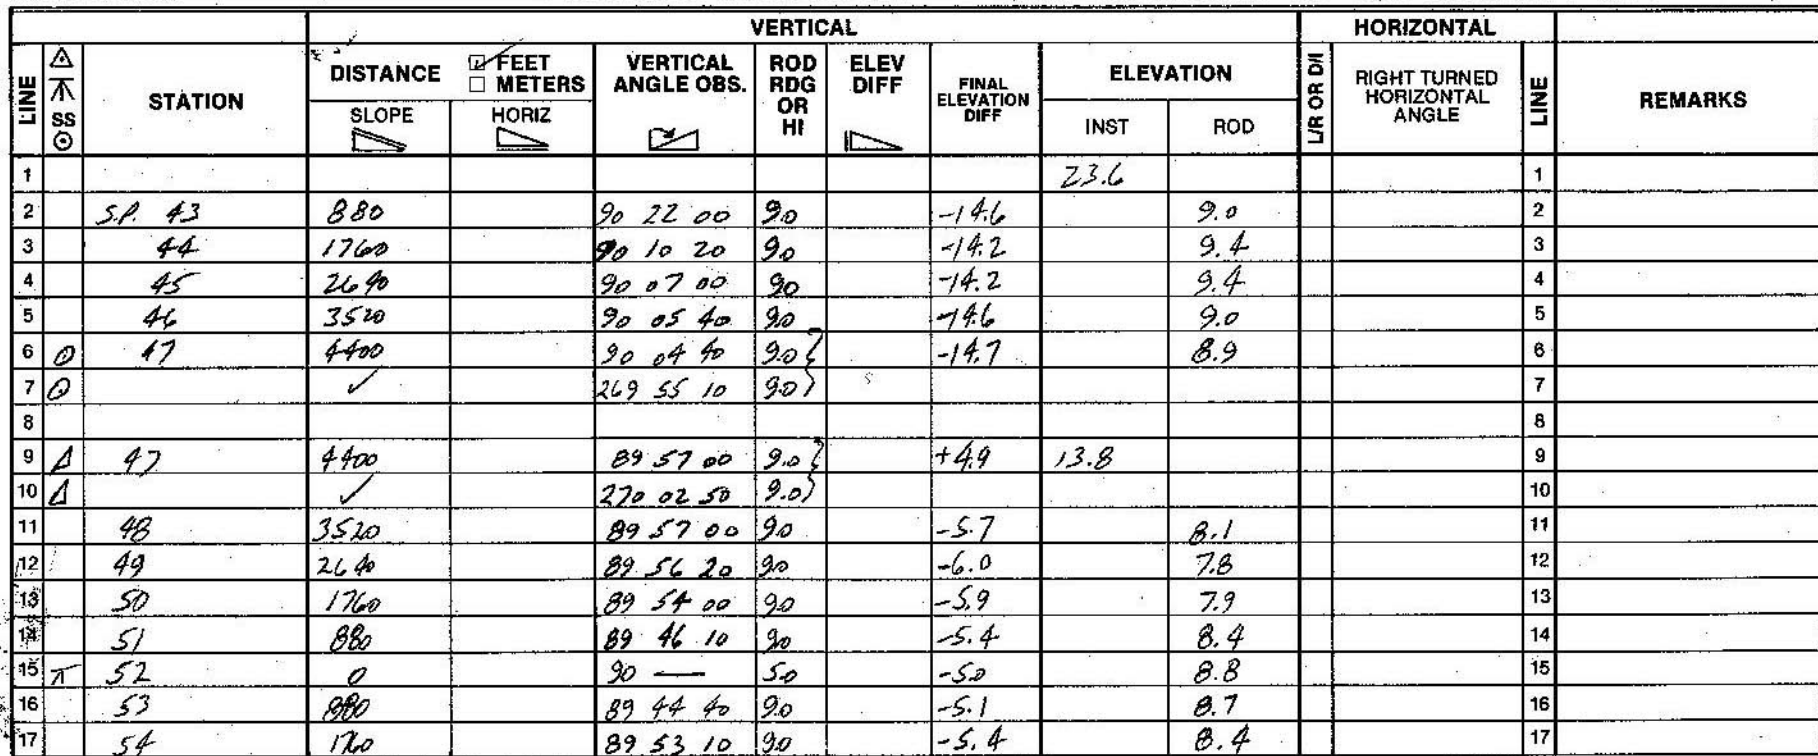 VERTICAL HORIZONTAL
LINE SS STATION DISTANCE ☑ FEET □ METERS SLOPE HORIZ VERTICAL ANGLE OBS. ROD RDG OR HI ELEV DIFF FINAL ELEVATION DIFF ELEVATION INST ROD L/R OR D/I RIGHT TURNED HORIZONTAL ANGLE LINE REMARKS
1 23.6 1
2 S.P. 43 880 90 22 00 9.0 -14.6 9.0 2
3 44 1760 90 10 20 9.0 -14.2 9.4 3
4 45 2640 90 07 00 9.0 -14.2 9.4 4
5 46 3520 90 05 40 9.0 -14.6 9.0 5
6 ⊙ 47 4400 90 04 40 9.0 -14.7 8.9 6
7 ⊙ ✓ 269 55 10 9.0 7
8 8
9 Δ 47 4400 89 57 00 9.0 +4.9 13.8 9
10 Δ ✓ 270 02 50 9.0 10
11 48 3520 89 57 00 9.0 -5.7 8.1 11
12 49 2640 89 56 20 9.0 -6.0 7.8 12
13 50 1760 89 54 00 9.0 -5.9 7.9 13
14 51 880 89 46 10 9.0 -5.4 8.4 14
15 52 0 90 — 5.0 -5.0 8.8 15
16 53 880 89 44 40 9.0 -5.1 8.7 16
17 54 1760 89 53 10 9.0 -5.4 8.4 17